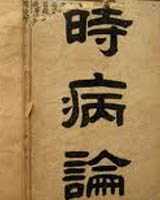 時病論